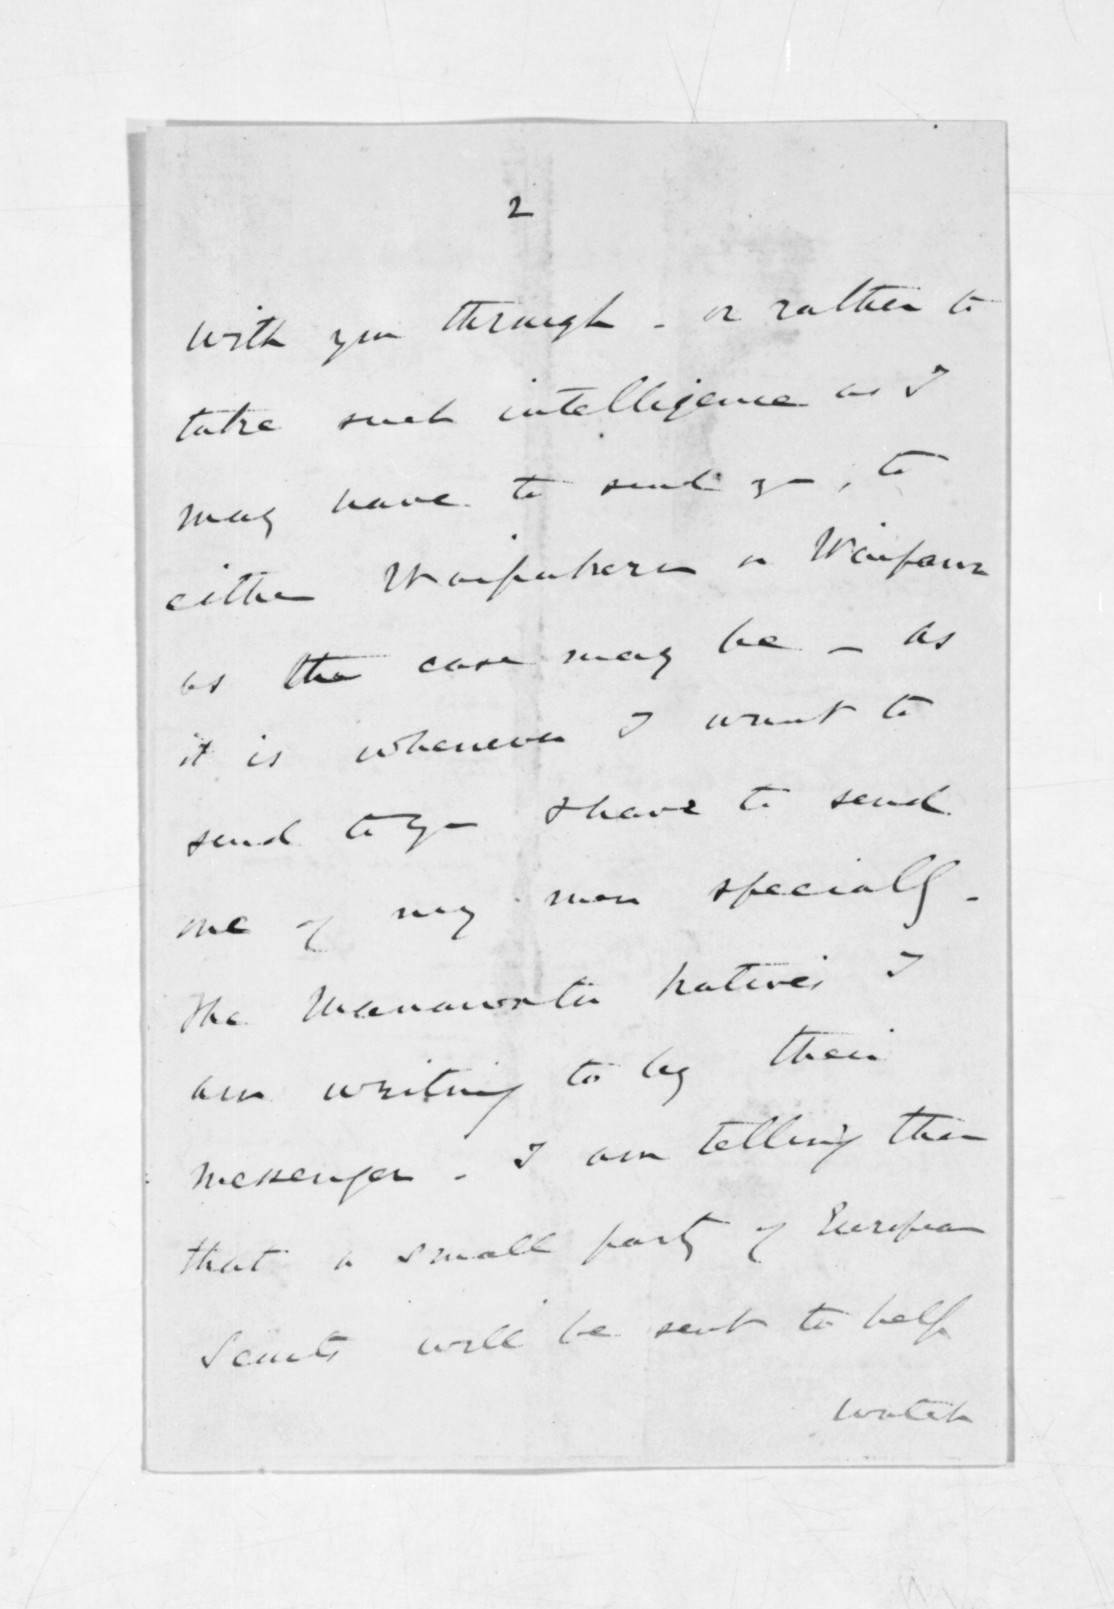 2
with you through - or rather to
take such intelligence as I
may have to send you, to
either Waipukurau or Waipawa
as the case may be - As
it is whenever I want to
send to you I have to send
one of my men specially -
The Manawatu natives I
am writing to by their
messenger - I am telling them
that a small party of European
Scouts will be sent to help
watch